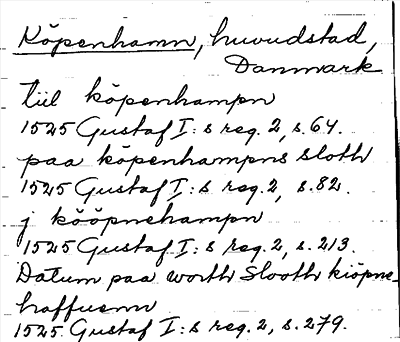 Köpenhamn, huvudstad,
Danmark
tiil köpenhampn
1525 Gustaf I:s reg. 2, s. 64.
paa köpenhampns sloth
1525 Gustaf I:s reg. 2, s. 82.
j kööpnehampn
1525 Gustaf I:s reg. 2, s. 213.
Datum paa worth Slooth kiöpne-
haffuenn
1525 Gustaf I:s reg. 2, s. 279.